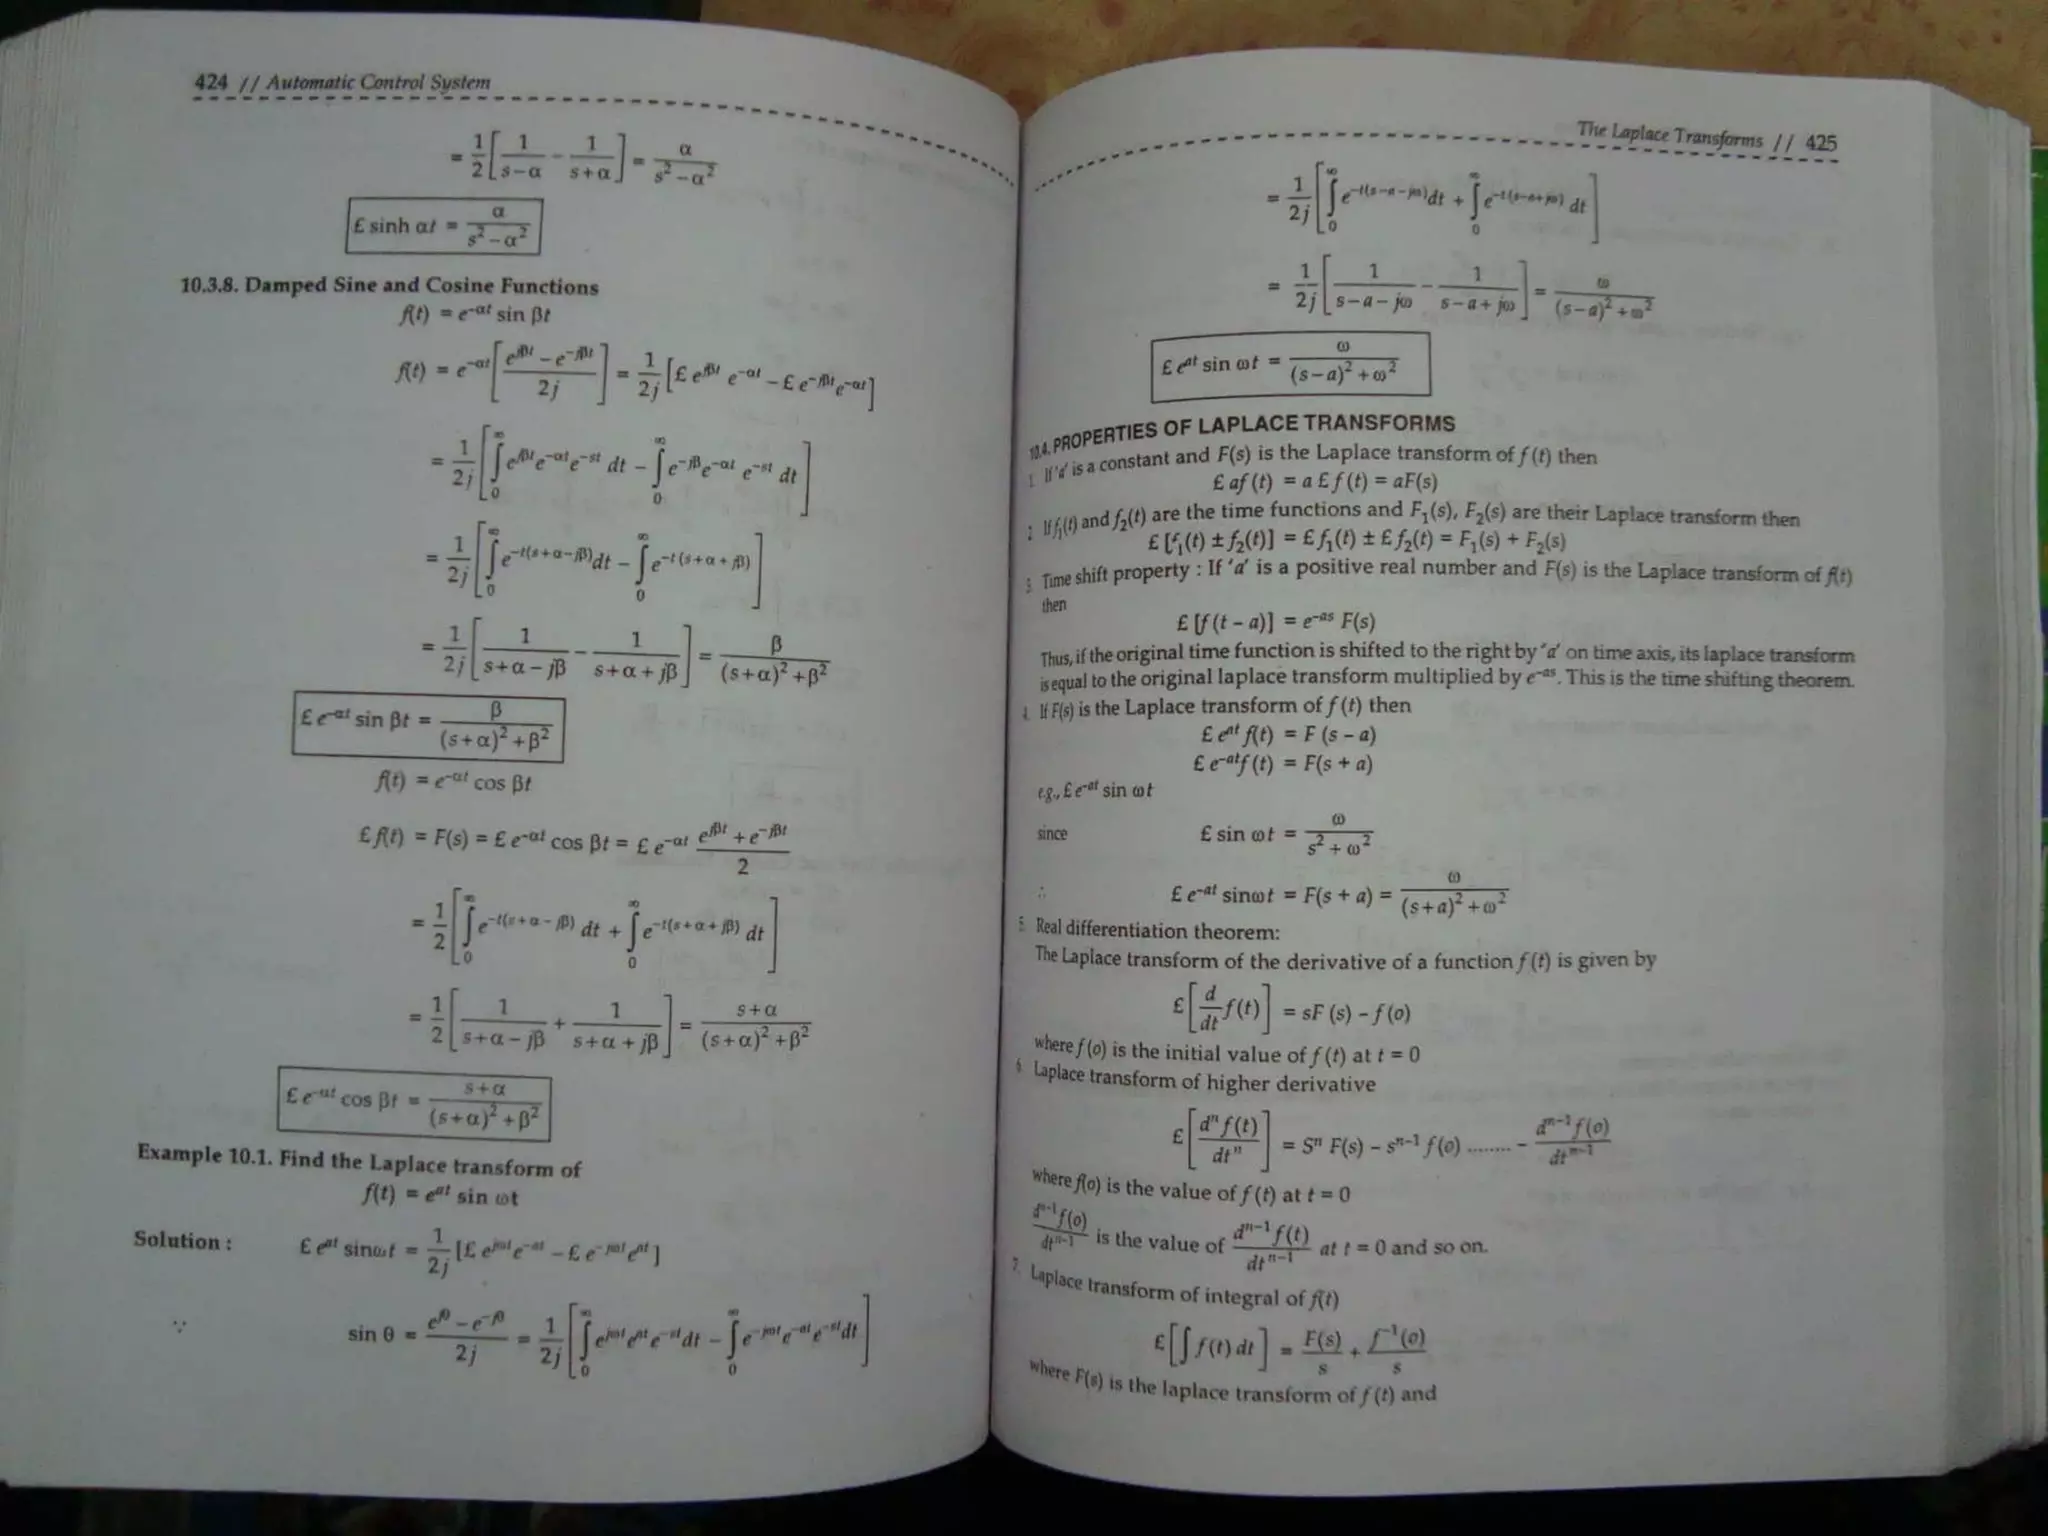 424 // Automatic Control System
= 1/2 [ 1/(s–α) – 1/(s+α) ] = α/(s² – α²)
£ sinh αt = α/(s² – α²)
10.3.8. Damped Sine and Cosine Functions
f(t) = e^(–αt) sin βt
f(t) = e^(–αt) [ (e^(jβt) – e^(–jβt))/2j ] = 1/2j [£ e^(jβt) e^(–αt) – £ e^(–jβt) e^(–αt)]
= 1/2j [ ∫₀^∞ e^(jβt) e^(–αt) e^(–st) dt – ∫₀^∞ e^(–jβ) e^(–αt) e^(–st) dt ]
= 1/2j [ ∫₀^∞ e^(–t(s+α–jβ)) dt – ∫₀^∞ e^(–t(s+α+jβ)) ]
= 1/2j [ 1/(s+α–jβ) – 1/(s+α+jβ) ] = β/((s+α)² + β²)
£ e^(–αt) sin βt = β/((s+α)² + β²)
f(t) = e^(–αt) cos βt
£ f(t) = F(s) = £ e^(–αt) cos βt = £ e^(–αt) (e^(jβt) + e^(–jβt))/2
= 1/2 [ ∫₀^∞ e^(–t(s+α–jβ)) dt + ∫₀^∞ e^(–t(s+α+jβ)) dt ]
= 1/2 [ 1/(s+α–jβ) + 1/(s+α+jβ) ] = (s+α)/((s+α)² + β²)
£ e^(–αt) cos βt = (s+α)/((s+α)² + β²)
Example 10.1. Find the Laplace transform of
f(t) = e^(at) sin ωt
Solution : £ e^(at) sinωt = 1/2j [£ e^(jωt) e^(–at) – £ e^(–jωt) e^(at)]
∵ sin θ = (e^(jθ) – e^(–jθ))/2j = 1/2j [ ∫₀^∞ e^(jωt) e^(at) e^(–st) dt – ∫₀^∞ e^(–jωt) e^(–at) e^(–st) dt ]
The Laplace Transforms // 425
= 1/2j [ ∫₀^∞ e^(–t(s–a–jω)) dt + ∫₀^∞ e^(–t(s–a+jω)) dt ]
= 1/2j [ 1/(s–a–jω) – 1/(s–a+jω) ] = ω/((s–a)² + ω²)
£ e^(at) sin ωt = ω/((s–a)² + ω²)
10.4. PROPERTIES OF LAPLACE TRANSFORMS
1. If 'a' is a constant and F(s) is the Laplace transform of f (t) then
£ af (t) = a £ f (t) = aF(s)
2. If f₁(t) and f₂(t) are the time functions and F₁(s), F₂(s) are their Laplace transform then
£ [f₁(t) ± f₂(t)] = £ f₁(t) ± £ f₂(t) = F₁(s) + F₂(s)
3. Time shift property : If 'a' is a positive real number and F(s) is the Laplace transform of f(t)
then
£ [f (t – a)] = e^(–as) F(s)
Thus, if the original time function is shifted to the right by 'a' on time axis, its laplace transform
is equal to the original laplace transform multiplied by e^(–as). This is the time shifting theorem.
4. If F(s) is the Laplace transform of f (t) then
£ e^(at) f(t) = F (s – a)
£ e^(–at) f (t) = F(s + a)
e.g., £ e^(–at) sin ωt
since £ sin ωt = ω/(s² + ω²)
∴ £ e^(–at) sinωt = F(s + a) = ω/((s+a)² + ω²)
5. Real differentiation theorem:
The Laplace transform of the derivative of a function f (t) is given by
£ [ d/dt f(t) ] = sF (s) – f (o)
where f (o) is the initial value of f (t) at t = 0
6. Laplace transform of higher derivative
£ [ dⁿ f(t)/dtⁿ ] = Sⁿ F(s) – s^(n–1) f (o) ........ – d^(n–1) f(o)/dt^(n–1)
where f(o) is the value of f (t) at t = 0
d^(n–1) f(o)/dt^(n–1) is the value of d^(n–1) f(t)/dt^(n–1) at t = 0 and so on.
7. Laplace transform of integral of f(t)
£ [ ∫ f(t) dt ] = F(s)/s + f^(–1)(o)/s
where F(s) is the laplace transform of f (t) and